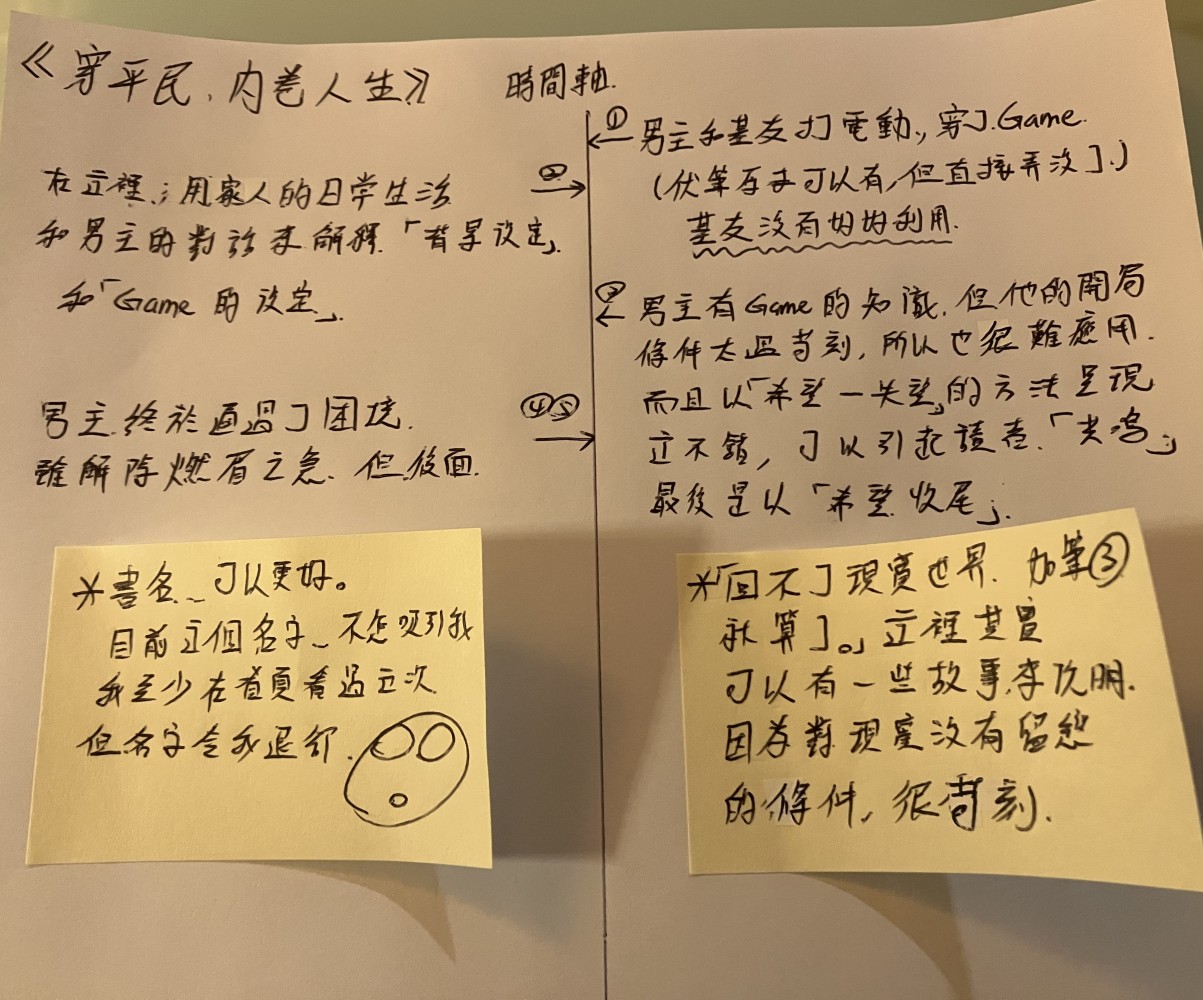 《穿平民、内卷人生》
時間軸.
①
男主和基友打電動,, 穿了.Game.
(伏筆存在可以有, 但直接弄没了.)
基友没有好好利用.
②
在這裡,; 用家人的日常生活
和男主的對話來解釋.「背景设定」.
和「Game 的设定」.
男主有Game 的知識. 但他的開局
條件太過苛刻, 所以也很難應用.
而且以「希望—失望」的方法呈現
這不錯, 可以引起讀者.「共鳴」
最後是以「希望.收尾」.
④⑤
男主.終於通過了困境.
雖解除燃眉之急. 但.後面.
*書名、可以更好。
目前這個名字、不怎吸引我
我至少在首頁看過這次
但名字令我退卻.
*「回不了現實世界. 加筆③
就算了。」這裡其實
可以有一些故事.來説明.
因為對現實没有留戀
的條件, 很苛刻.